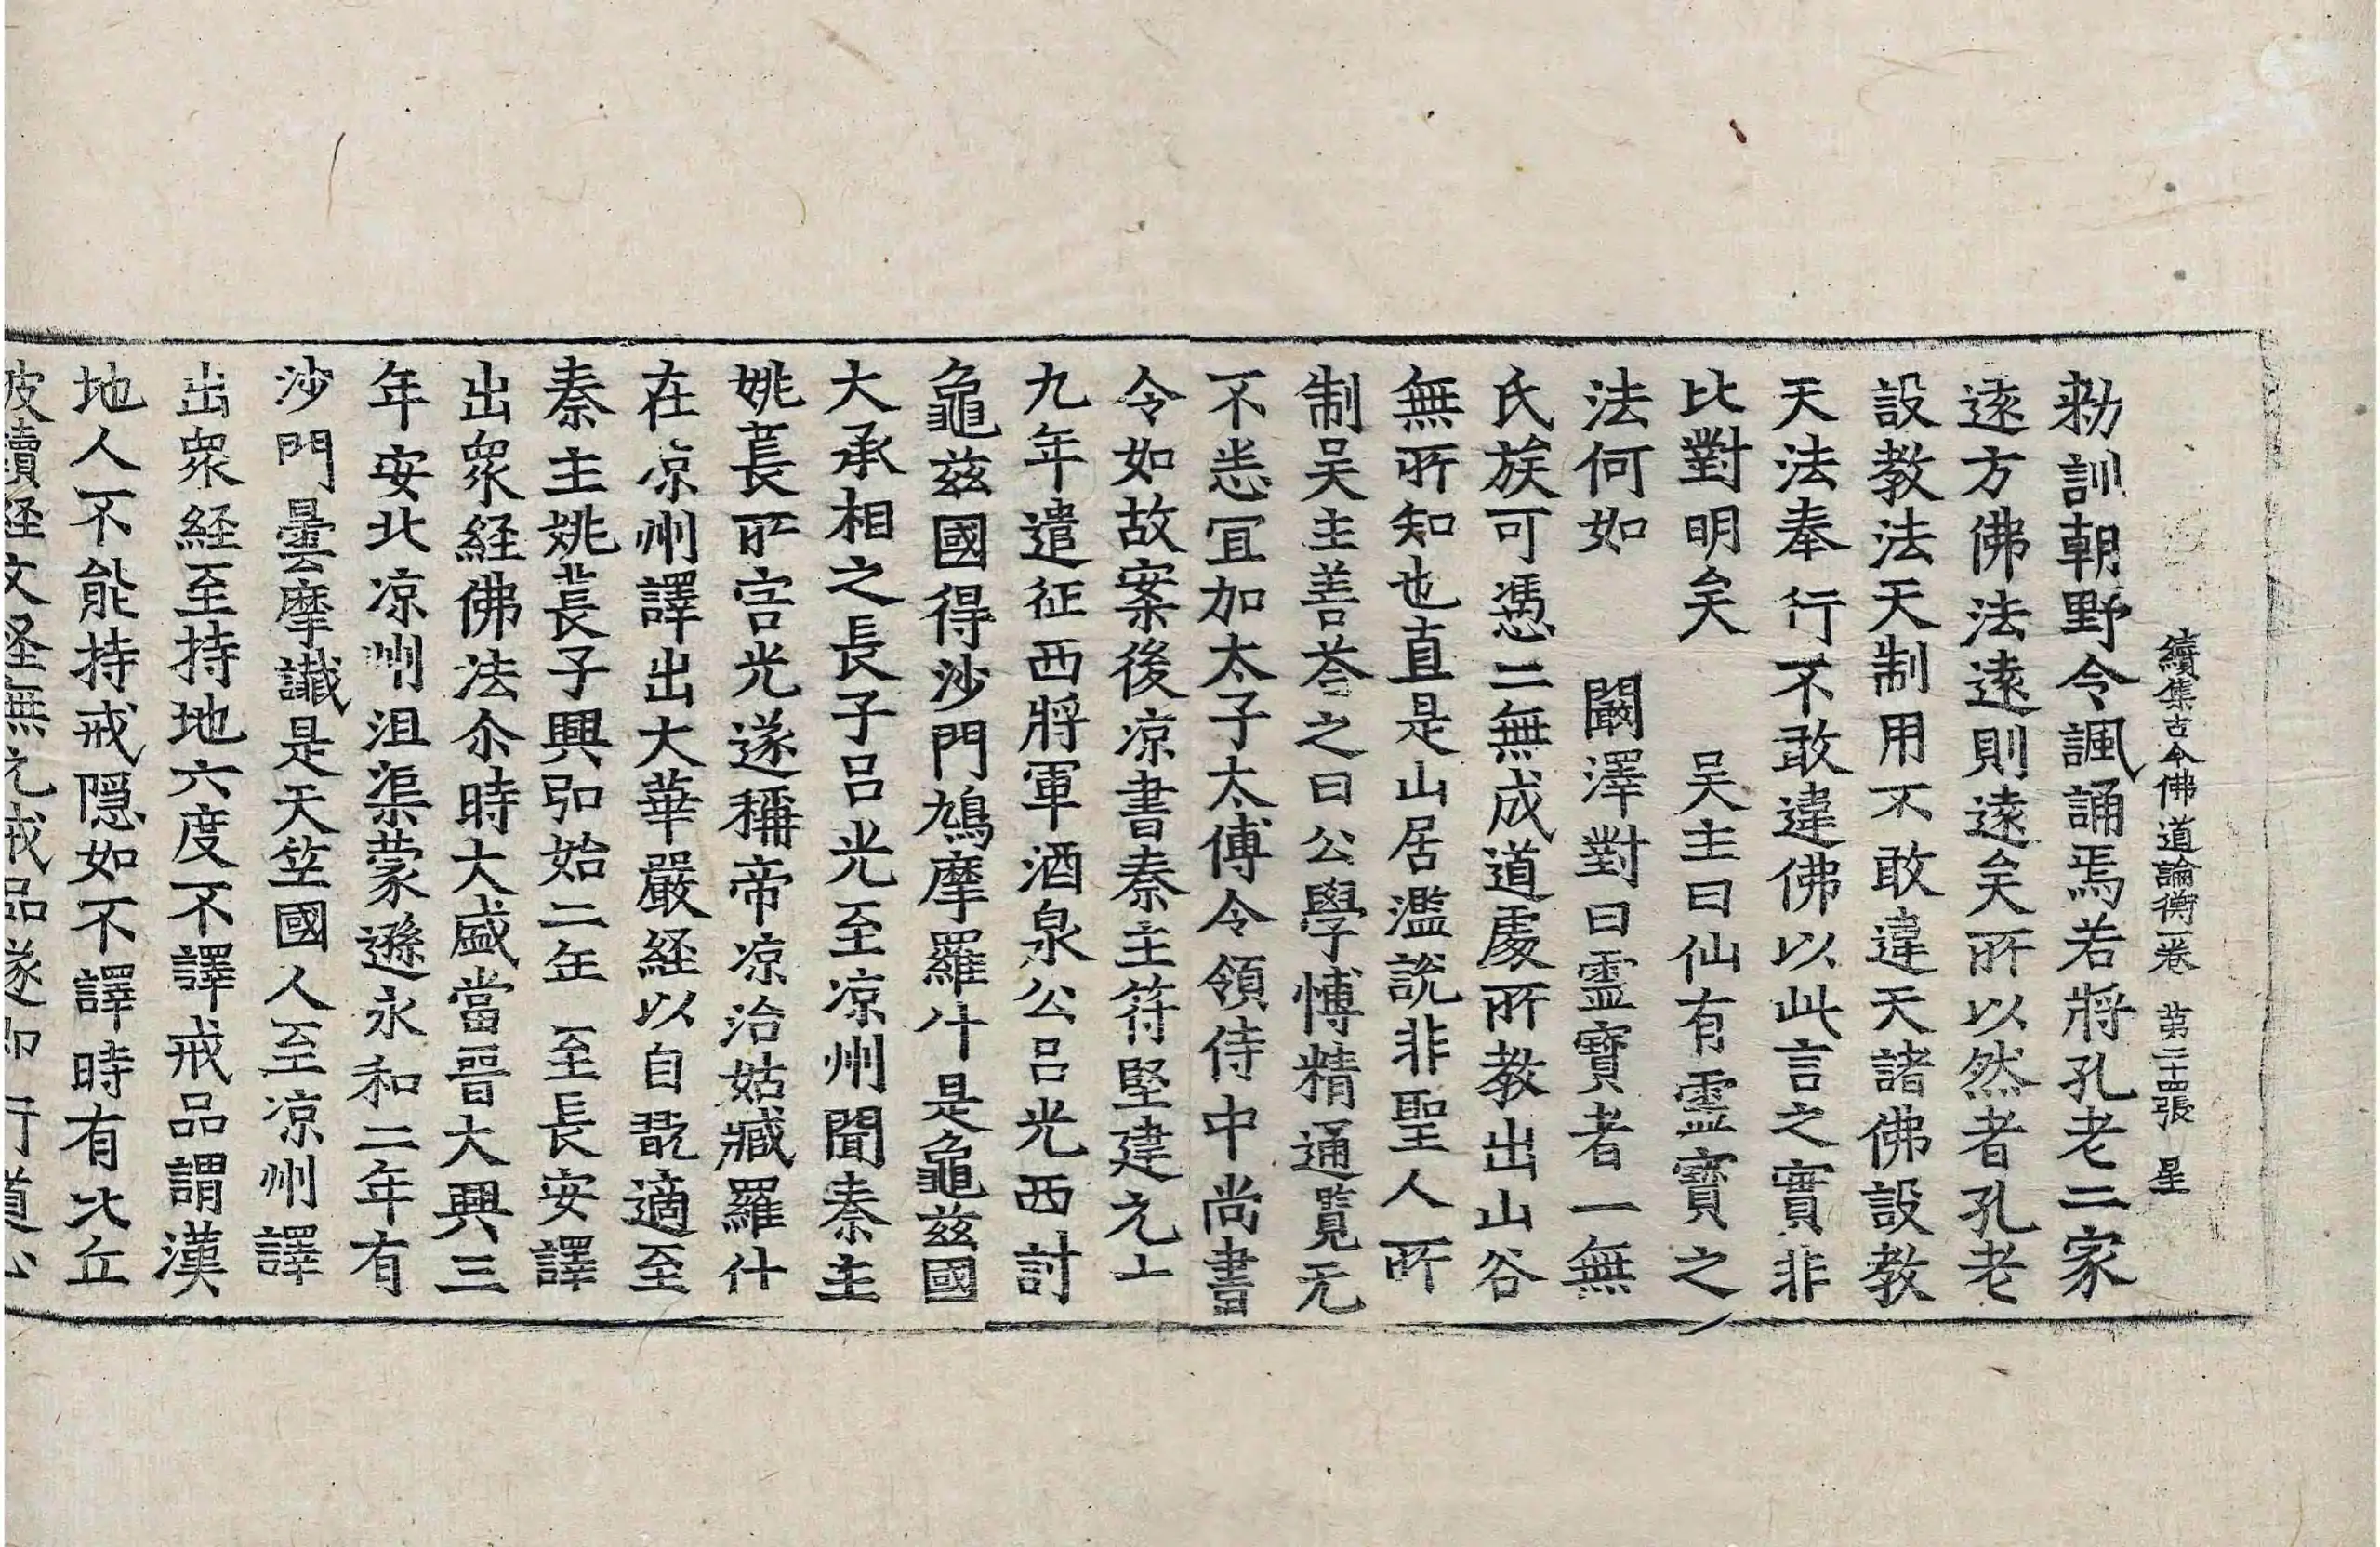 續集古今佛道論衡一卷 苐二十四張 星
勑訓朝野令諷誦焉若將孔老二家
遠方佛法遠則遠矣所以然者孔老
設教法天制用不敢違天諸佛設教
天法奉行不敢違佛以此言之實非
比對明矣 吴主曰仙有靈寶之
法何如 闞澤對曰靈寶者一無
氏族可憑二無成道處所教出山谷
無所知也直是山居濫說非聖人所
制吴主善荅之曰公學愽精通覧无
不悉冝加太子太傅令領侍中尚書
令如故案後凉書秦主符堅建元上
九年遣征西將軍酒泉公吕光西討
龜茲國得沙門鳩摩羅什是龜茲國
大承相之長子吕光至凉州聞秦主
姚萇所害光遂稱帝凉治姑臧羅什
在凉州譯出大華嚴経以自翫適至
秦主姚萇子興弘始二年 至長安譯
出衆経佛法尒時大盛當晉大興三
年安北凉州沮渠蒙遜永和二年有
沙門曇摩讖是天竺國人至凉州譯
出衆経至持地六度不譯戒品謂漢
地人不能持戒隠如不譯時有比丘
披讀経文怪無元戒品遂即行道